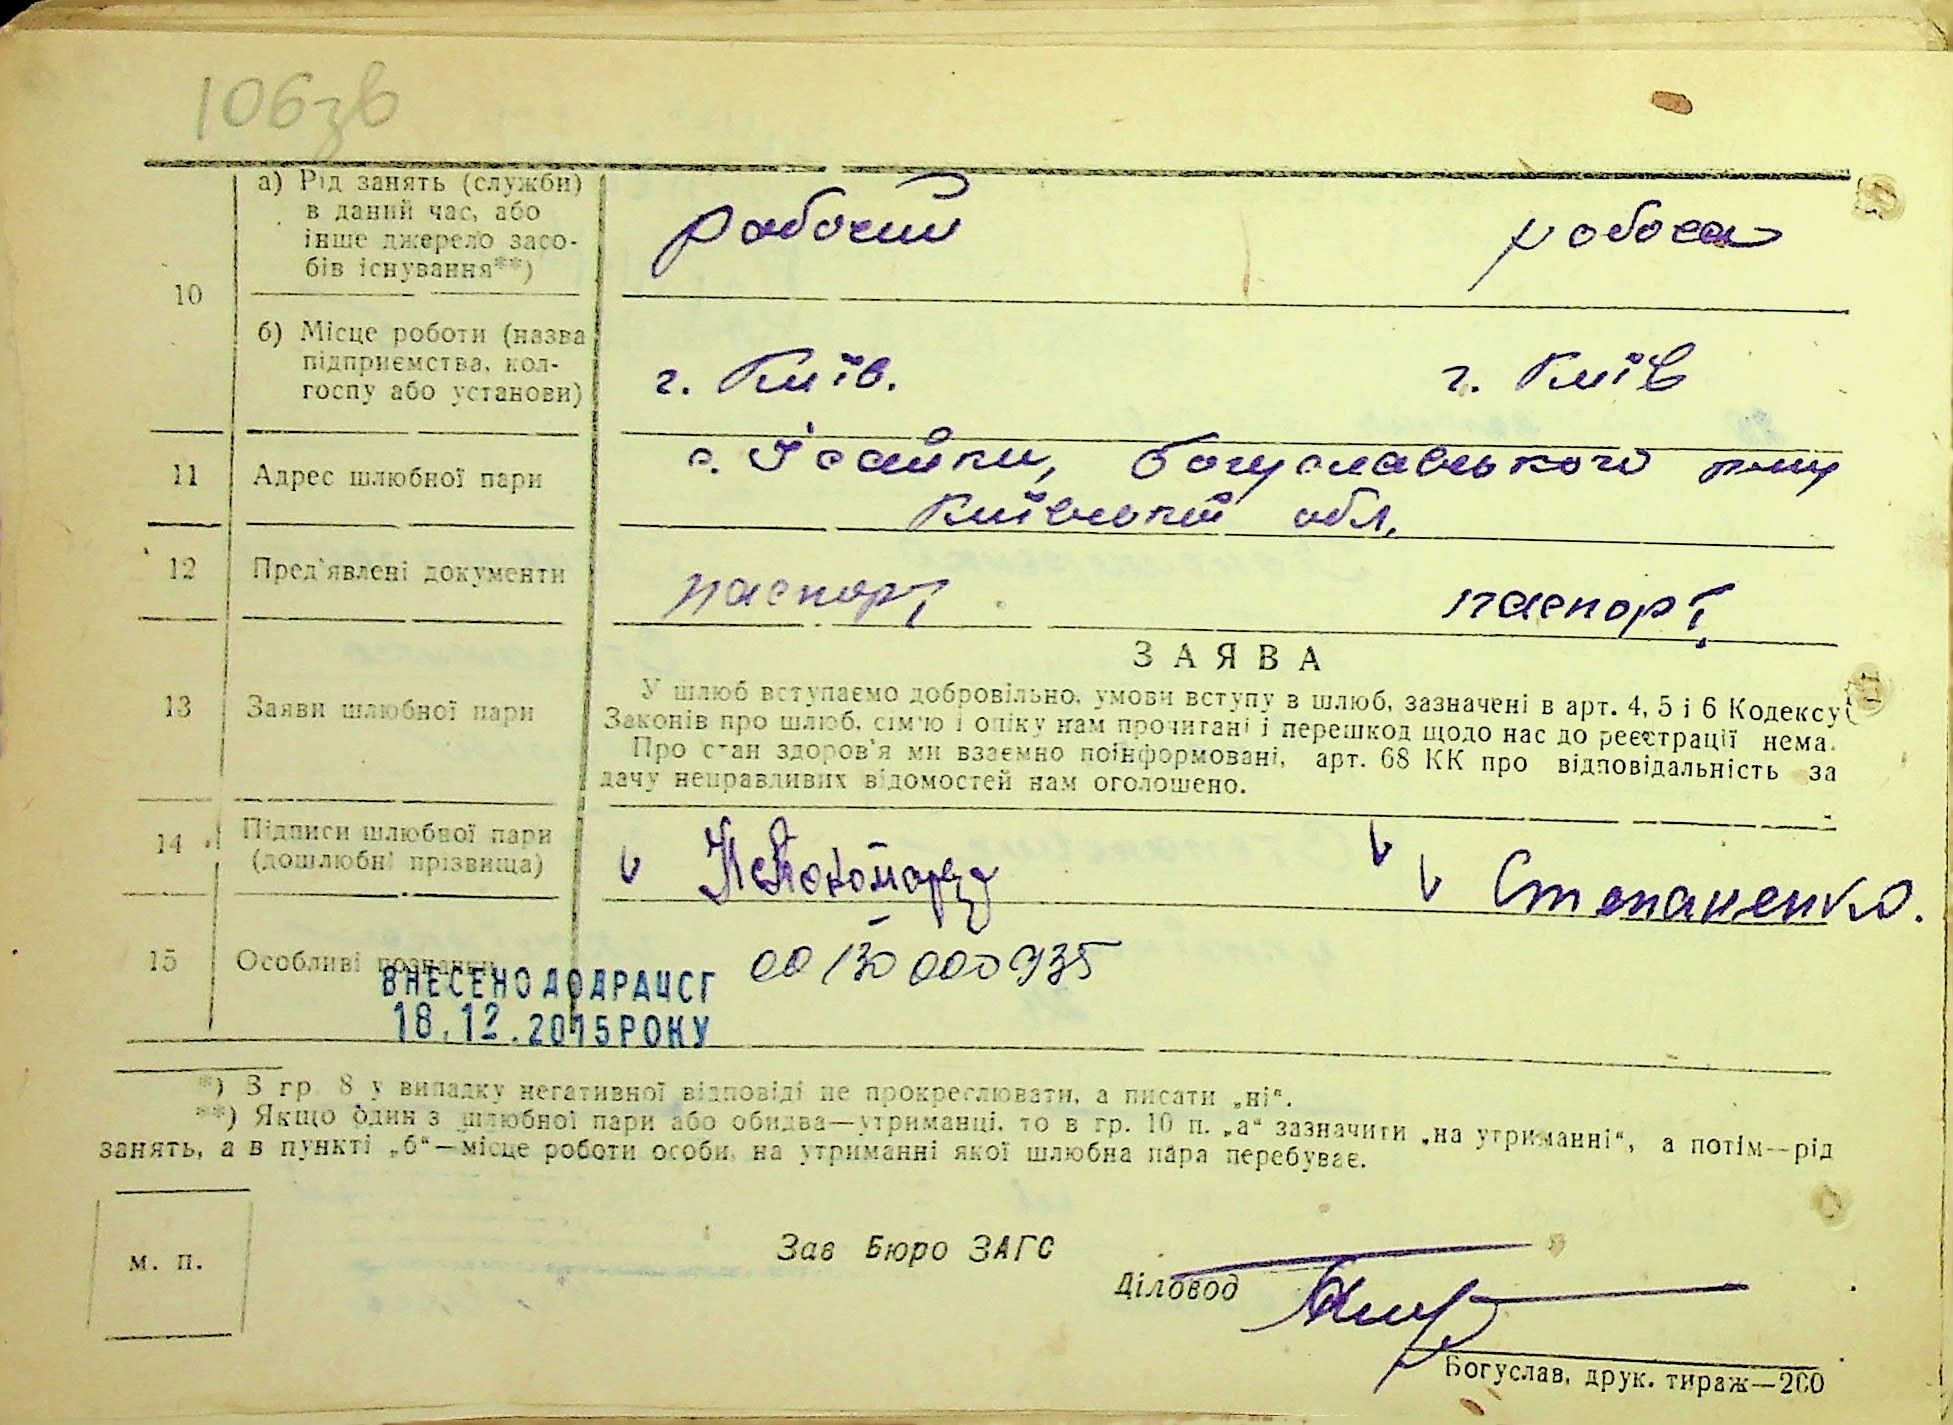 106зв
а) Рід занять (служби)
в даний час, або
інше джерело засо-
бів існування**)
рабочий робоча
10
б) Місце роботи (назва
підприємства, кол-
госпу або установи)
г. Київ. г. Київ
11 Адрес шлюбної пари с. Ісайки, Богуславського р-ну
Київської обл.
12 Пред'явлені документи паспорт паспорт
ЗАЯВА
13 Заяви шлюбної пари
У шлюб вступаємо добровільно, умови вступу в шлюб, зазначені в арт. 4, 5 і 6 Кодексу
Законів про шлюб, сім'ю і опіку нам прочитані і перешкод щодо нас до реєстрації нема.
Про стан здоров'я ми взаємно поінформовані, арт. 68 КК про відповідальність за
дачу неправливих відомостей нам оголошено.
14 Підписи шлюбної пари
(дошлюбні прізвища)
Степаненко.
15 Особливі позначки 00130000935
ВНЕСЕНО ДО ДРАЦСГ
18.12.2015 РОКУ
*) З гр. 8 у випадку негативної відповіді не прокреслювати, а писати „ні“.
**) Якщо один з шлюбної пари або обидва—утриманці, то в гр. 10 п. „а“ зазначити „на утриманні“, а потім—рід
занять, а в пункті „б“—місце роботи особи, на утриманні якої шлюбна пара перебуває.
м. п.
Зав Бюро ЗАГС
Діловод
Богуслав, друк. тираж—200